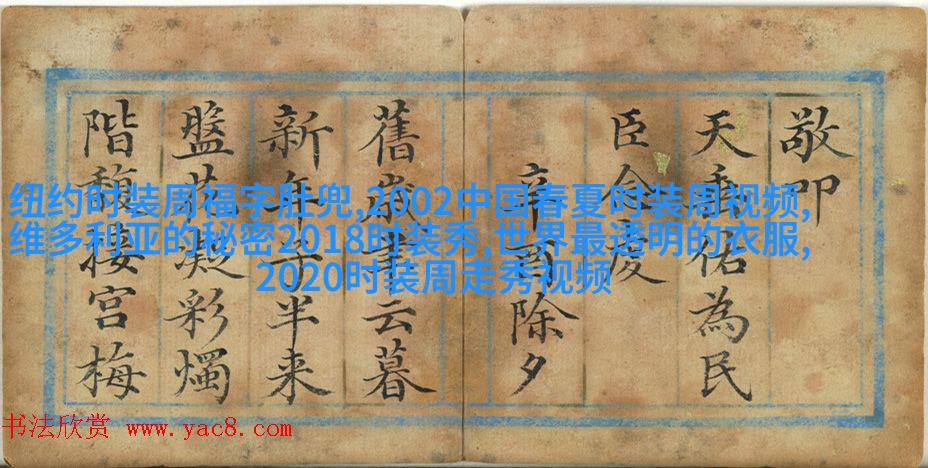 敬叩
天垂佑為民
臣合度
辛酉除夕
舊歲聿云暮
新年子半来
盤花凝彩燭
階馥接宮梅
纽约时装周福字肚兜,2002中国春夏时装周视频,
维多利亚的秘密2018时装秀,世界最透明的衣服,
2020时装周走秀视频
书法欣赏 www.yac8.com